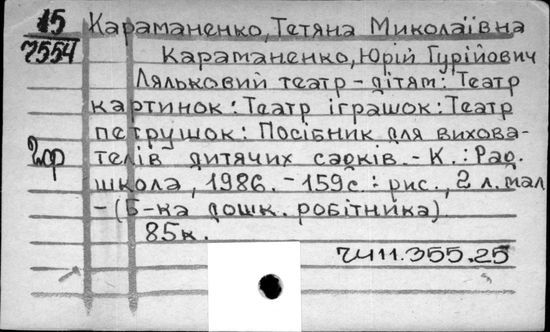 15 Караманенко, Тетяна Миколаївна
7554 Караманенко, Юрій Гурійович
Ляльковий театр - дітям: Театр
картинок: Театр іграшок: Театр
петрушок: Посібник для вихова-
телів дитячих садків. - К.: Рад.
школа, 1986. - 159с.: рис., 2 л. мал.
- (Б-ка дошк. робітника)
85к.
Ч411.355.25